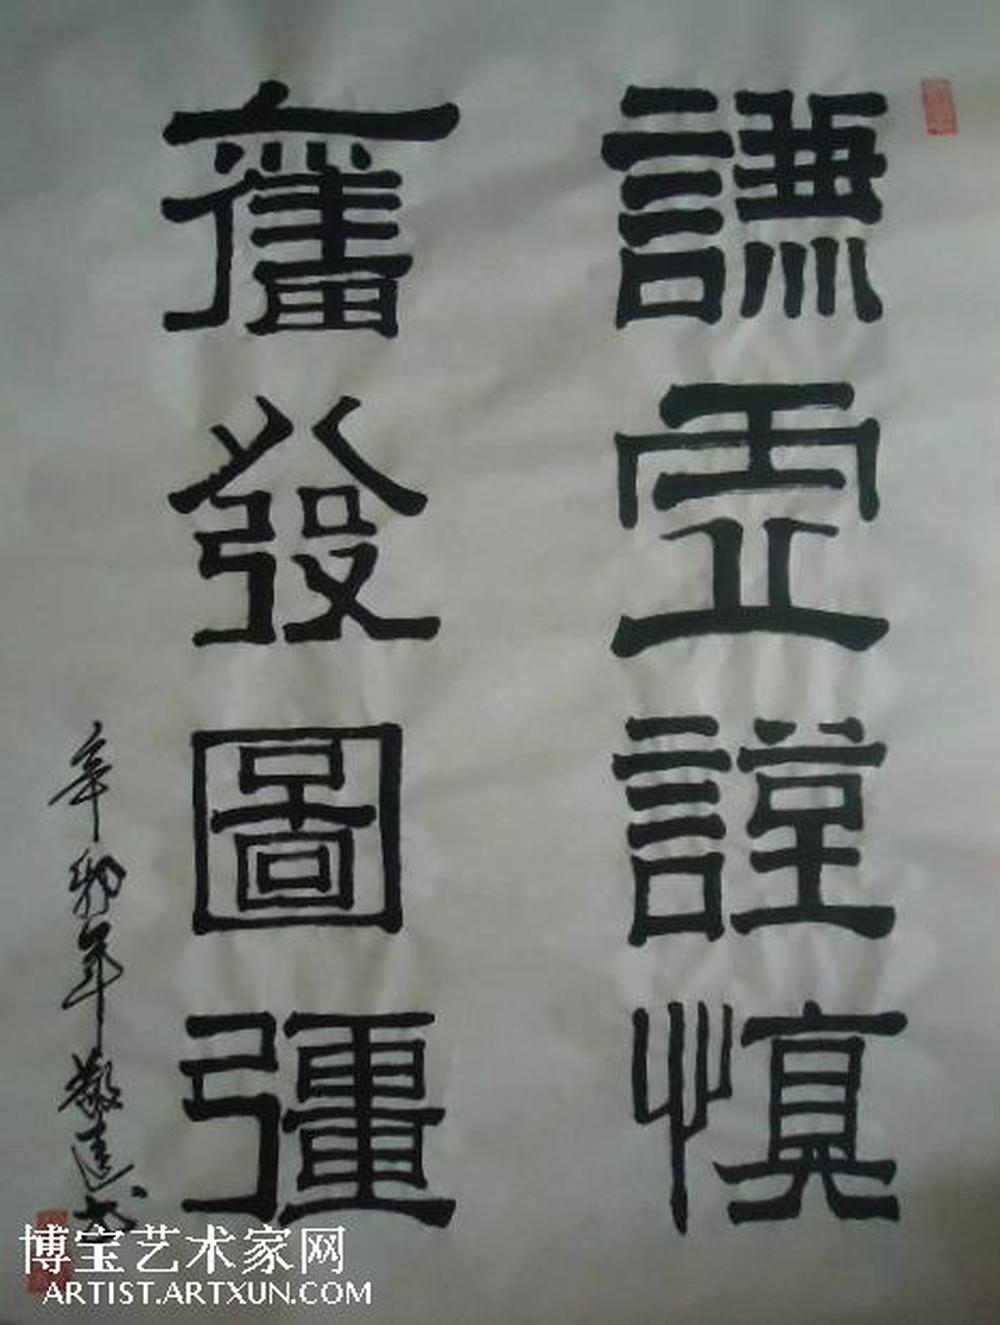 謙虛謹慎
奮發圖彊
辛卯年敬遠书
博宝艺术家网
ARTIST.ARTXUN.COM